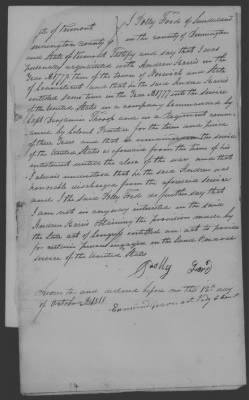 State of Vermont
Bennington county ss
I Polly Ford of Sunderland
in the county of Bennington
and State of Vermont Testify and say that I was
personally acquainted with Andrew Harris in the
Year AD 1777 then of the town of Norwich and State
of Connecticut and that he the said Andrew Harris
enlisted some time in the Year AD 1777 into the service
of the United States in a company commanded by
Capt Benjamin Throop and in a Regiment comm
anded by Colonel for the term and time
of three Years and that he remained in the service
of the United States as aforesaid from the time of his
enlistment until the close of the war and that
I always understood that he the said Andrew was
honorably discharged from the aforesaid service
and I the said Polly Ford do further say that
I am not in anyway interested in the said
Andrew Harris obtaining the provision made by
the late act of Congress entitled an act to provide
for certain persons engaged in the Land & naval
service of the United States
Polly Ford
Sworn to and declared before me this 12th day
of October AD 1818